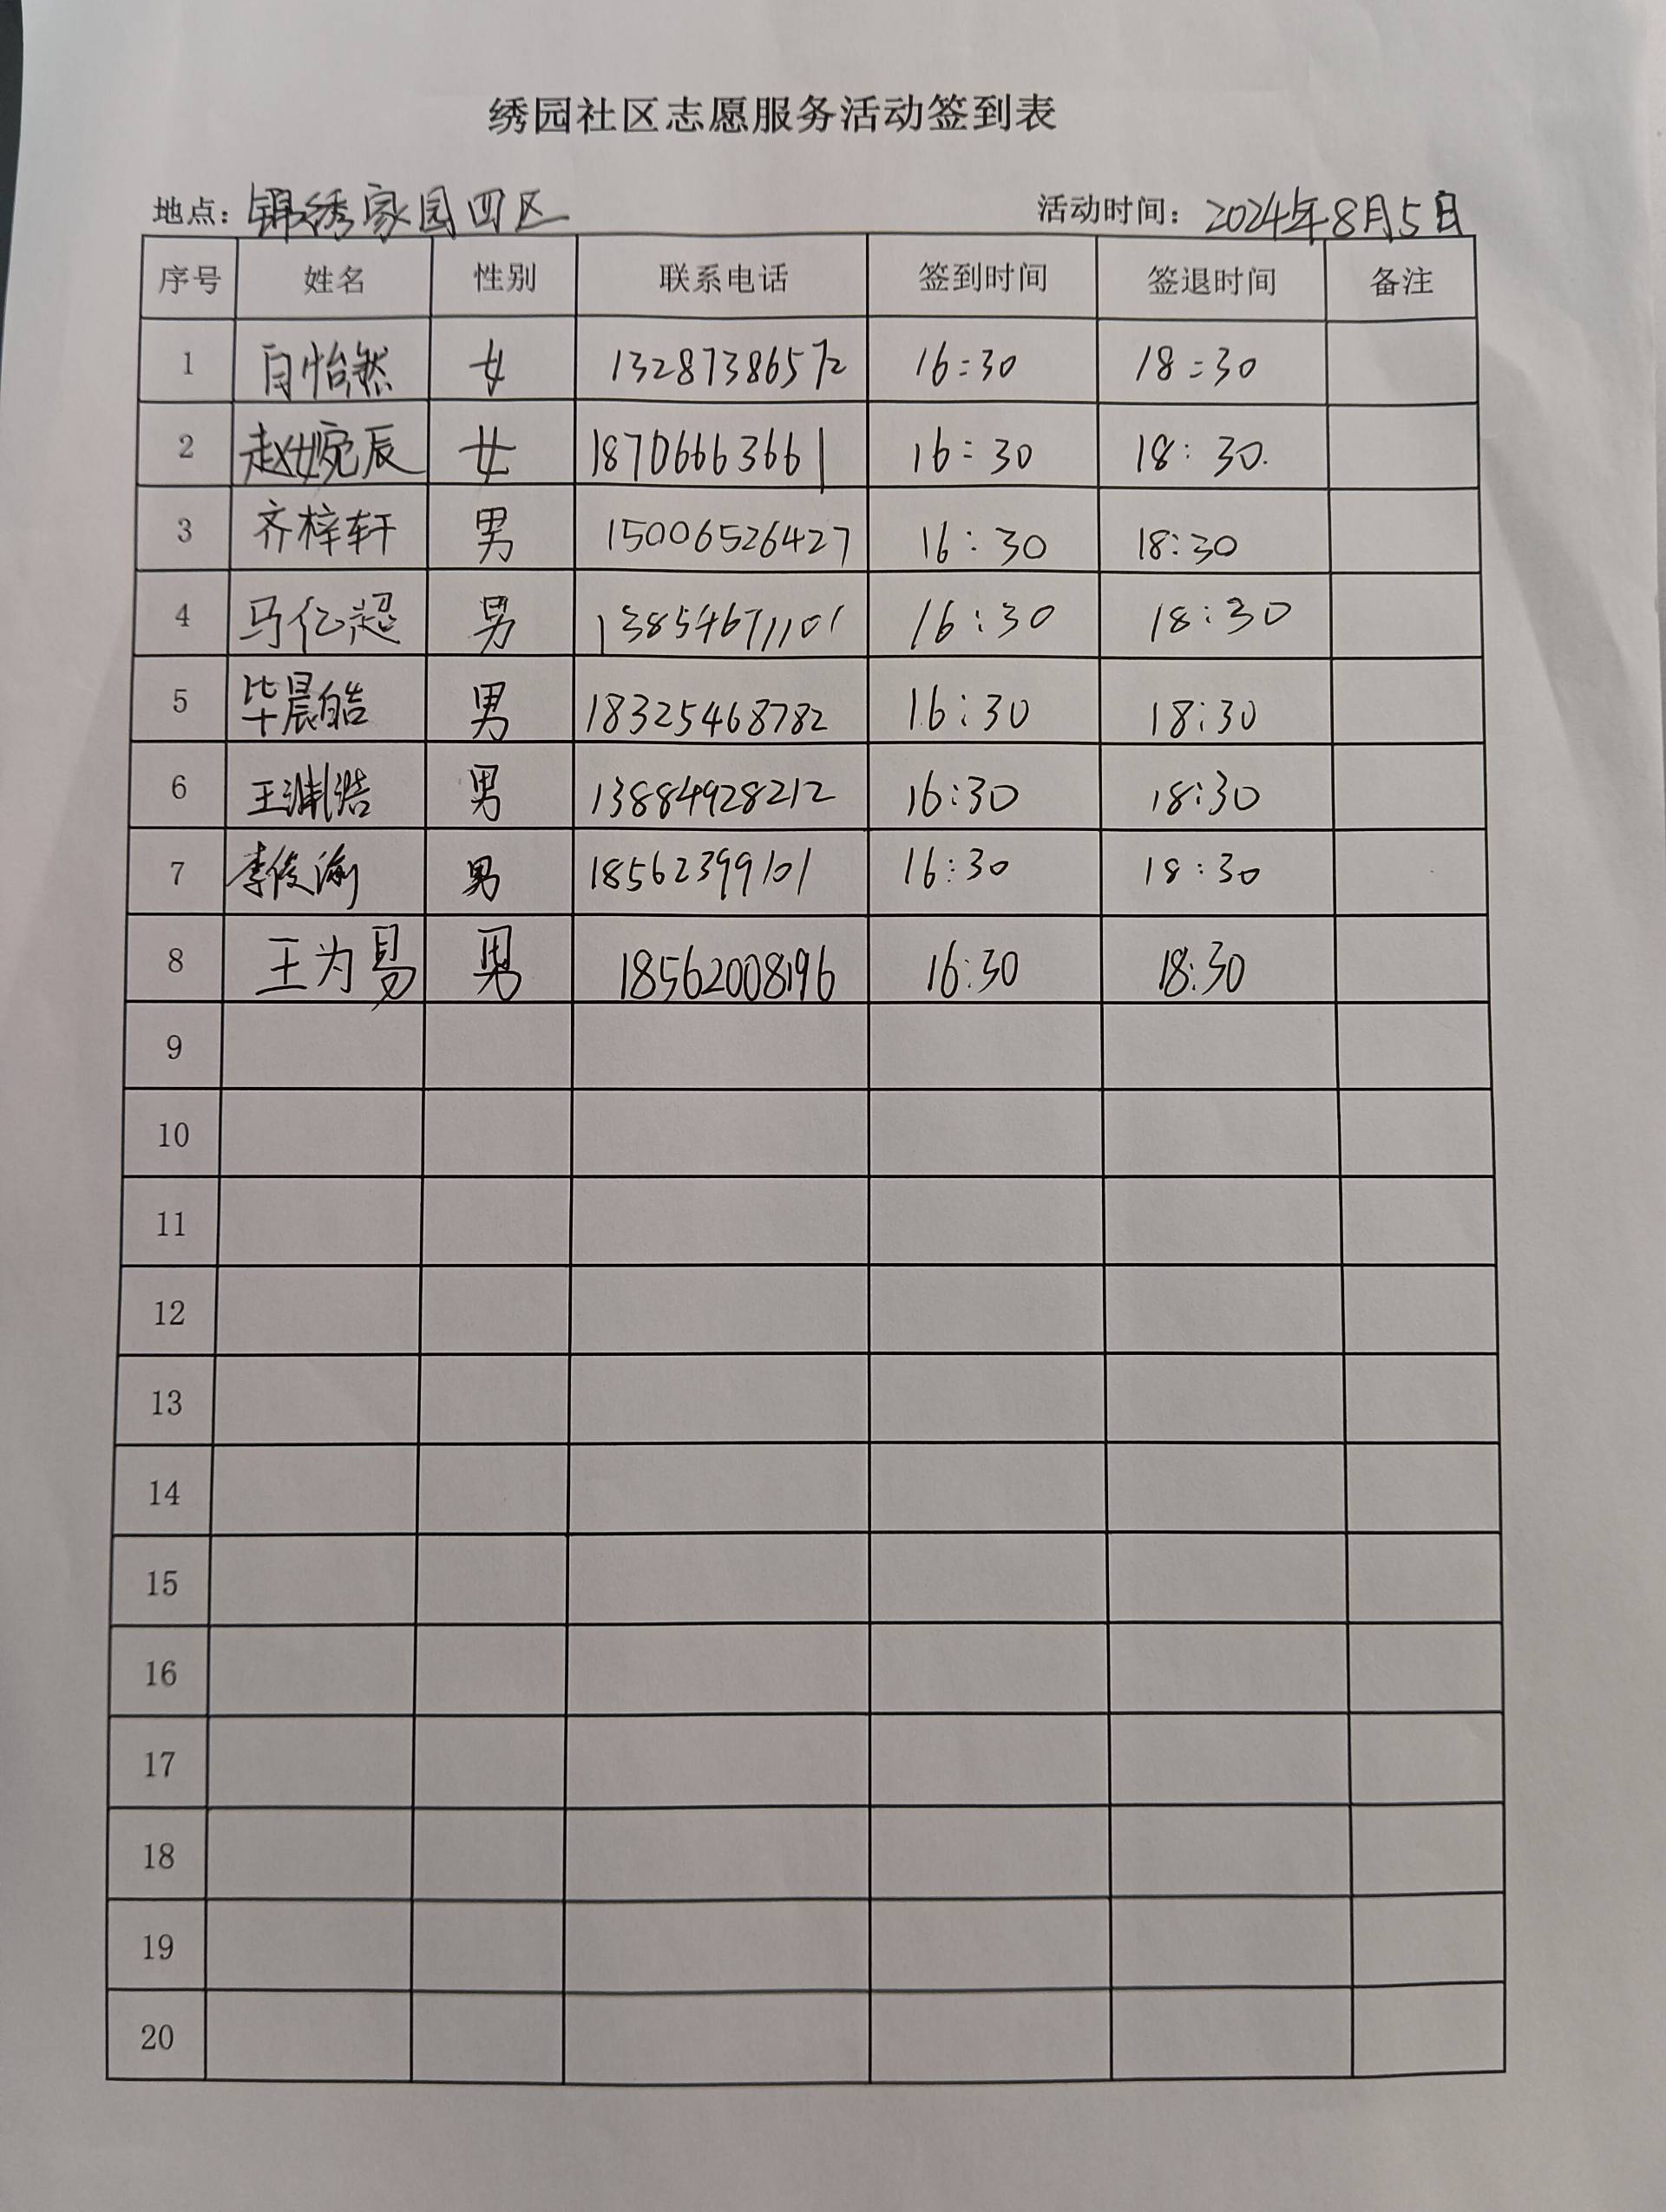 绣园社区志愿服务活动签到表
地点：锦绣家园四区 活动时间：2024年8月5日
序号 姓名 性别 联系电话 签到时间 签退时间 备注
1 白怡然 女 13287386572 16:30 18:30
2 赵婉辰 女 18706663661 16:30 18:30.
3 齐梓轩 男 15006526427 16:30 18:30
4 马亿超 男 13854671101 16:30 18:30
5 毕晨皓 男 18325468782 16:30 18:30
6 王渊浩 男 13884928212 16:30 18:30
7 李俊渝 男 18562399101 16:30 18:30
8 王为易 男 18562008196 16:30 18:30
9
10
11
12
13
14
15
16
17
18
19
20